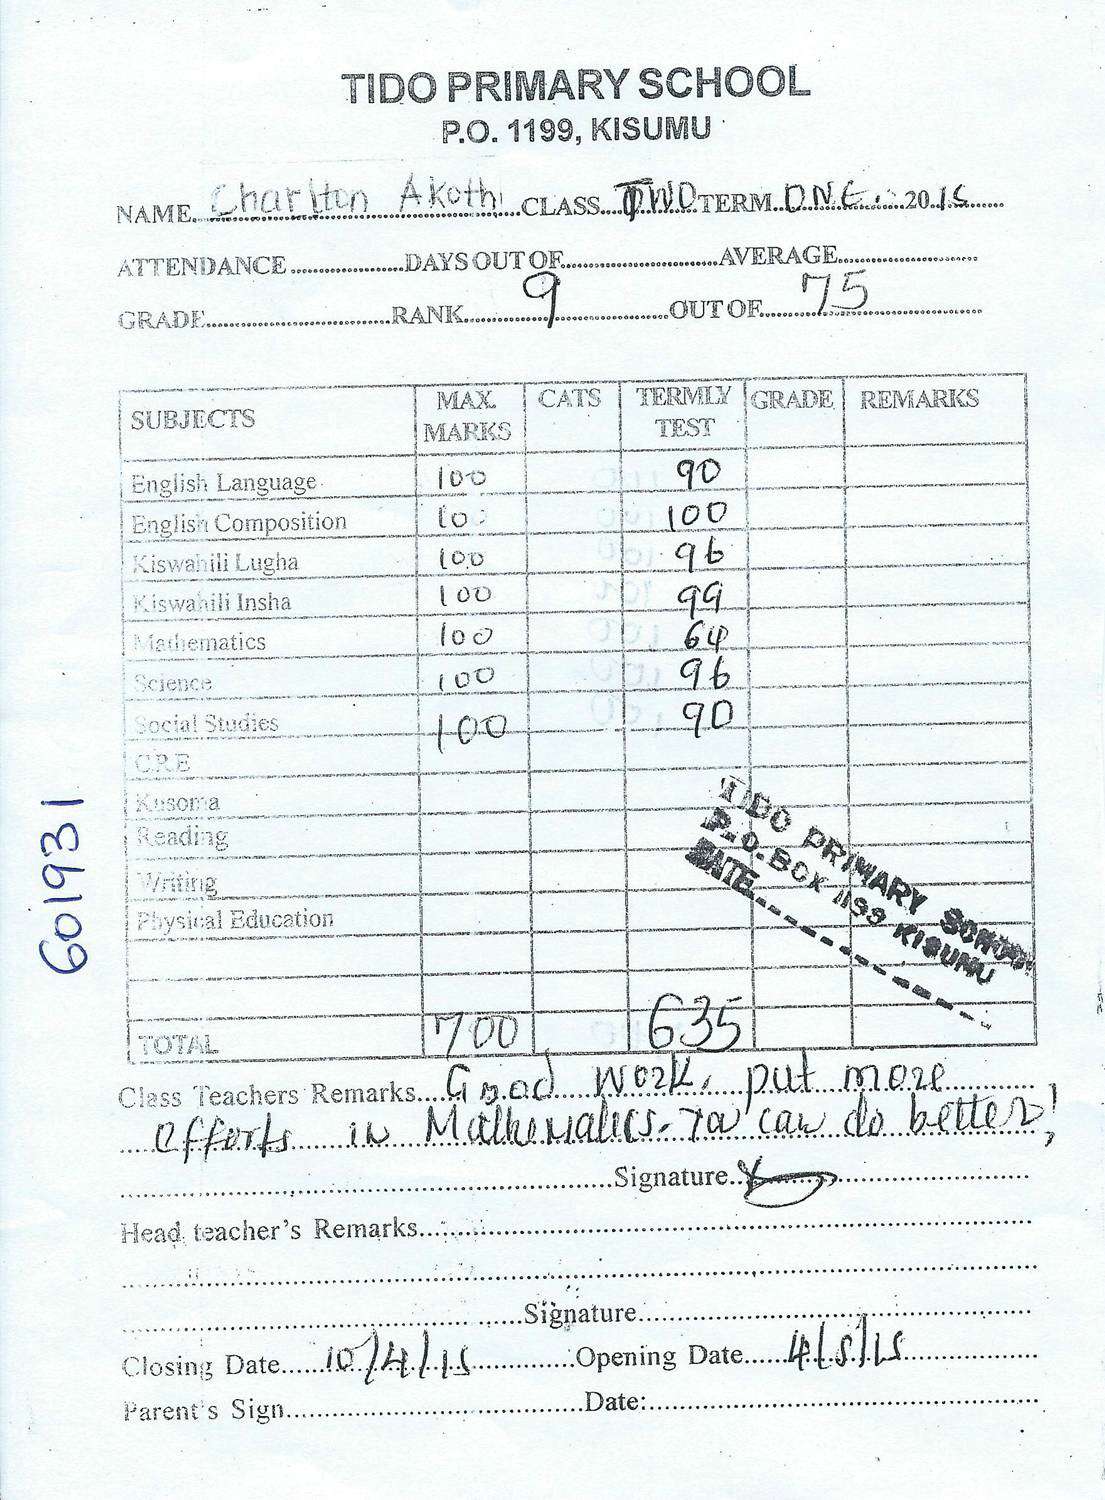 TIDO PRIMARY SCHOOL
P.O. 1199, KISUMU
NAME Charlton Akoth CLASS TWO TERM ONE. 2015
ATTENDANCE DAYS OUT OF AVERAGE
GRADE RANK 9 OUT OF 75
SUBJECTS MAX. MARKS CATS TERMLY TEST GRADE REMARKS
English Language 100 90
English Composition 100 100
Kiswahili Lugha 100 96
Kiswahili Insha 100 99
Mathematics 100 64
Science 100 96
Social Studies 100 90
C.R.E
Kusoma
Reading
Writing
Physical Education
TIDO PRIMARY SCHOOL
P.O. BOX 1199 KISUMU
DATE
TOTAL 700 635
Class Teachers Remarks Good work, put more
efforts in Mathematics. You can do better!
Signature
Head teacher's Remarks
Signature
Closing Date 10/4/15 Opening Date 4/5/15
Parent's Sign Date:
601931